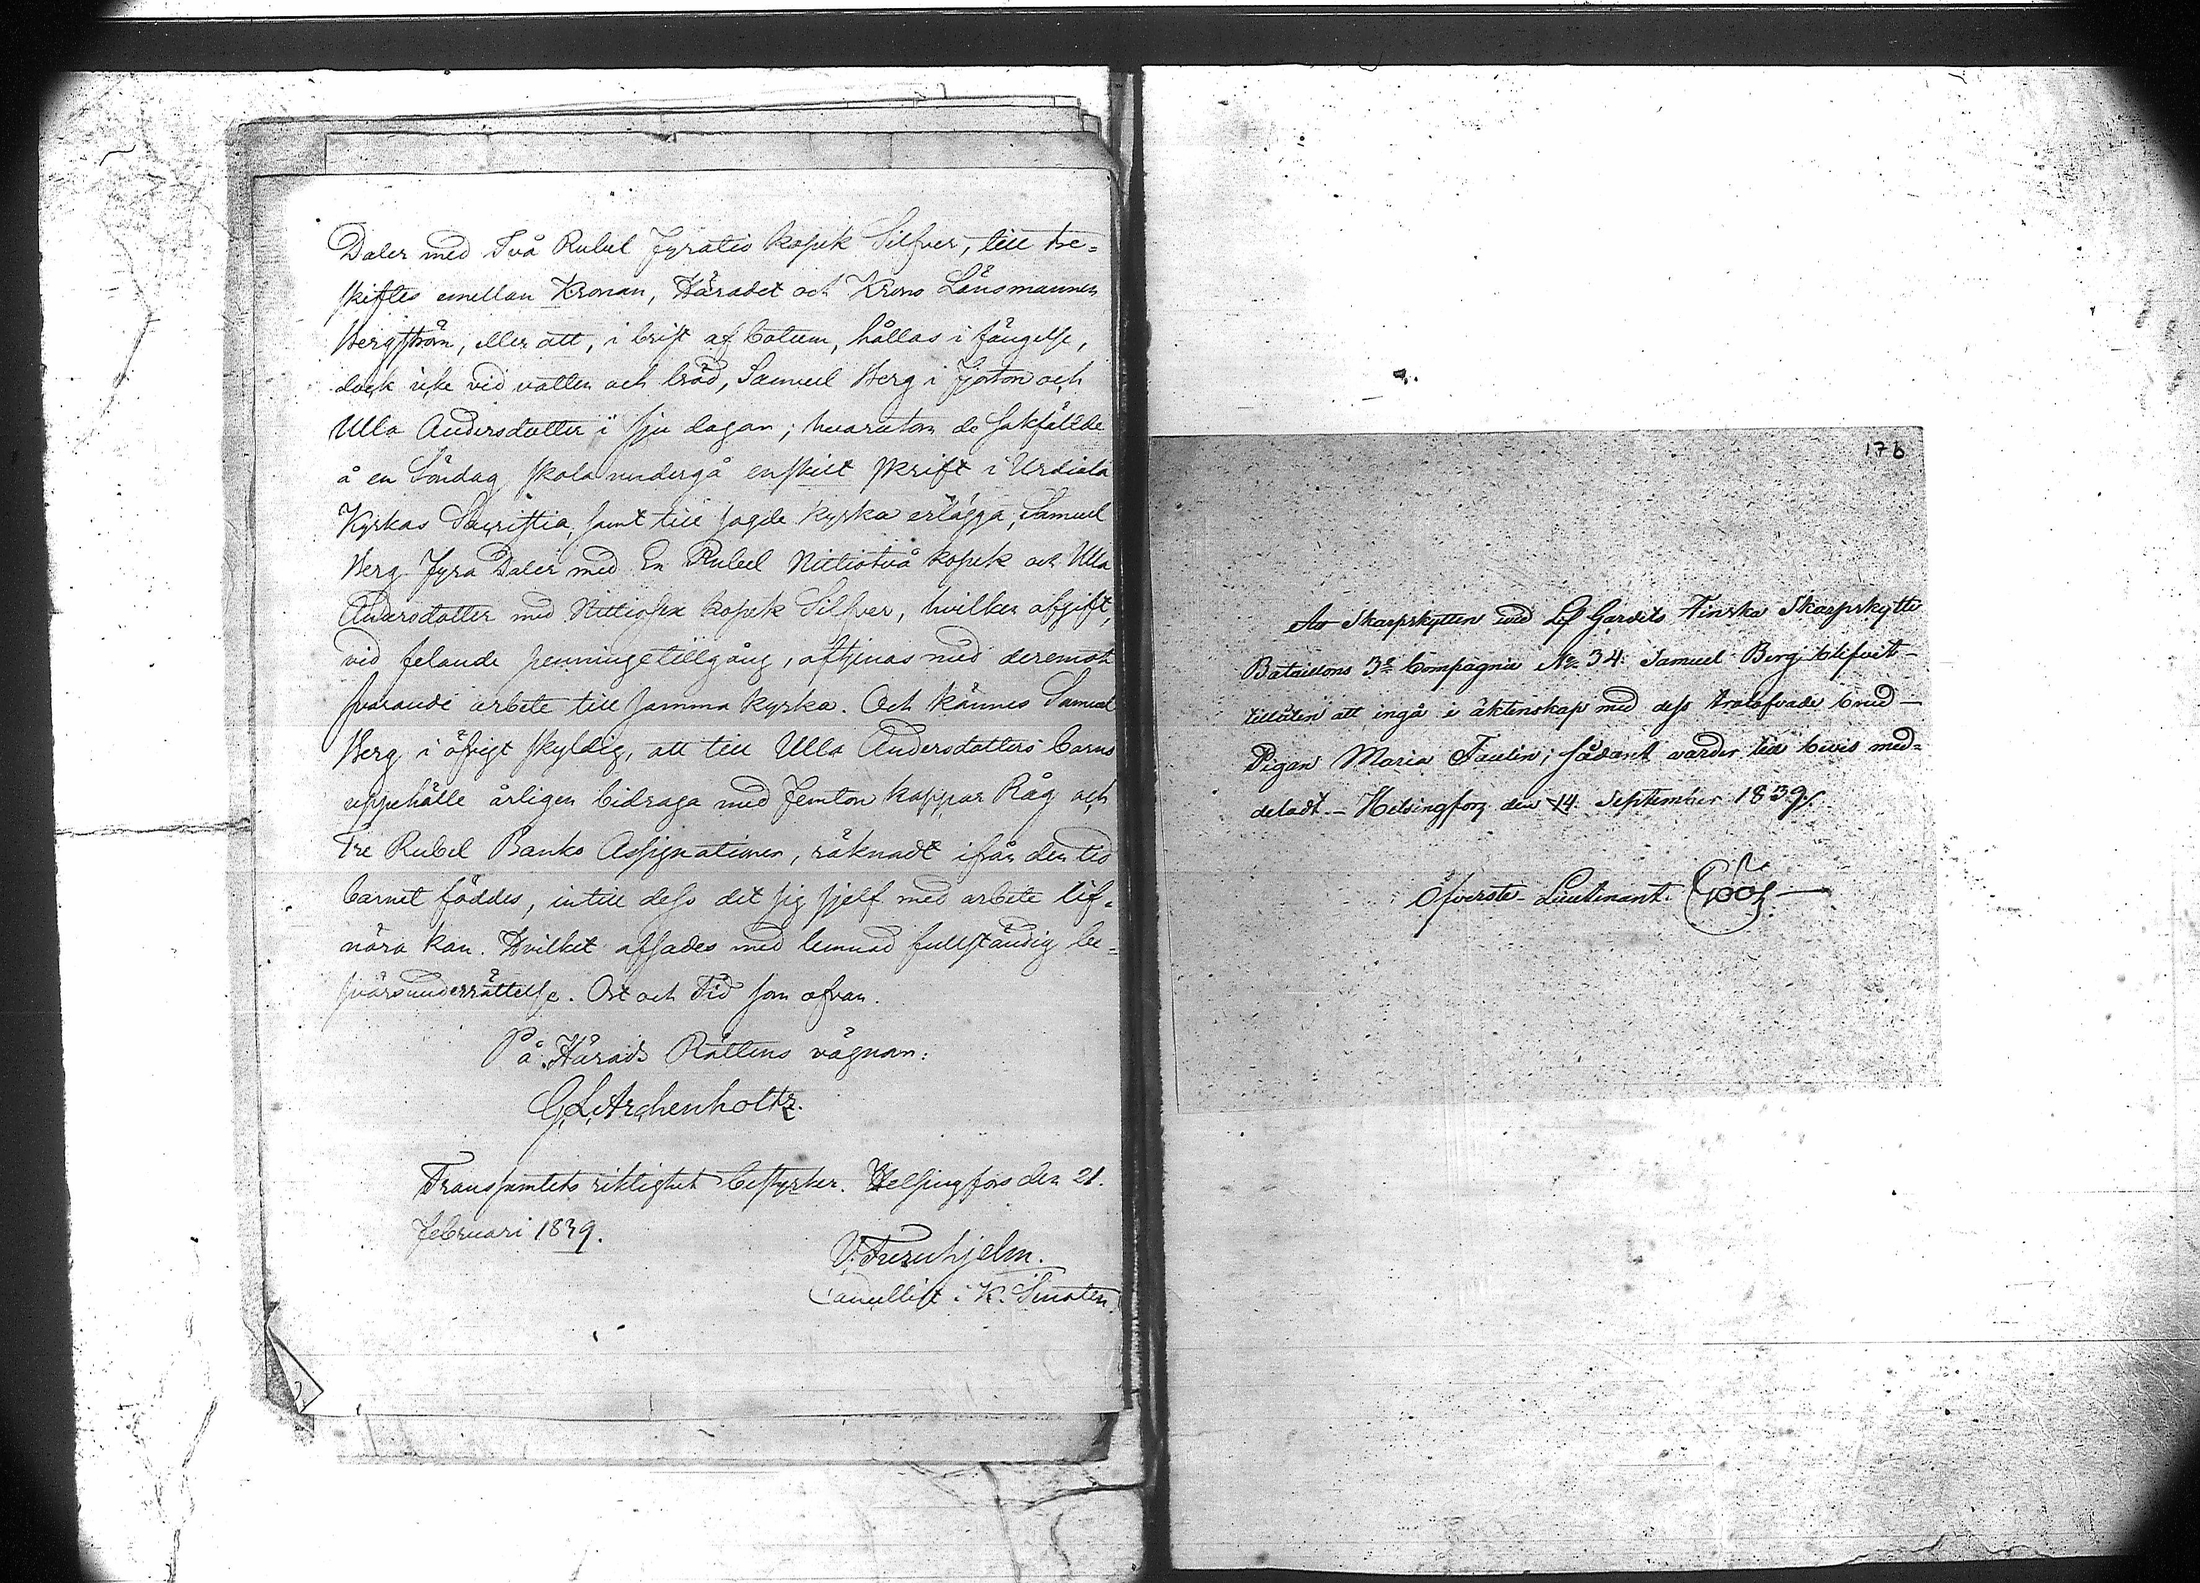 Daler med Två Rubel Fyratio kopek Silfver, till tre=
skiftes emellan Kronan, Häradet och Krono Länsmannen
Bergström, eller ått, i brist af botum, hållas i fängelse,
dock icke vid vatten och bröd, Samuel Berg i fjorton och
Ulla Andersdotter i sju dagar; hvarutom de sakfällde
å en Söndag skola undergå enskilt skrift i Urdiala
Kyrkas Sacristia, samt till sagde kyrka erlägga, Samuel
Berg Fyra Daler med En Rubel Nittiotvå kopek och Ulla
Andersdotter med Nittiosex kopek Silfver, hvilken afgift,
vid felande penningetillgång, aftjenas med deremot
svarande arbete till samma kyrka. Och kännes Samuel
Berg i öfrigt skyldig, att till Ulla Andersdotters barns
uppehälle årligen bidraga med Femton kappar Råg och
Tre Rubel Banko Assignationer, räknadt ifrån den tid
barnet föddes, intill dess det sig sjelf med arbete lif=
nära kan. Hvilket afsades med lemnad fullständig be=
svärsunderrättelse. Ort och Tid som ofvan.
På Härads Rättens vägnar:
G. L. Archenholtz.
Transsumtets riktighet bestyrker. Helsingfors den 21.
Februari 1839.
V. Furuhjelm.
Cancellist i K. Senaten.
176
At Skarpskytten vid Lif Gardets Finska Skarpskytte
Bataillons 3e Compagnie No 34. Samuel Berg blifvit
tillåten att ingå i äktenskap med dess trolofvade brud
Pigan Maria Faulin; sådant varder till bevis med=
deladt. - Helsingfors den 14. September 1839.
Öfverste-Lieutinant.